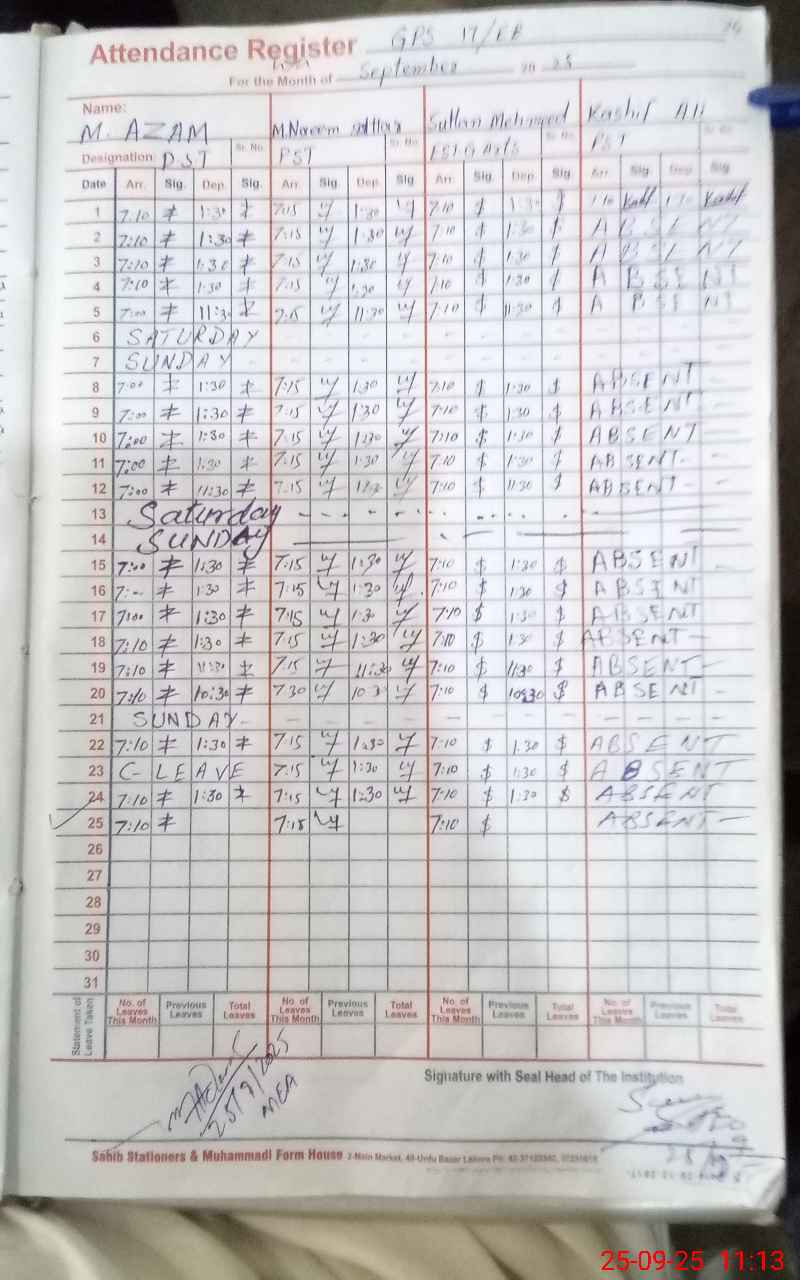 Attendance Register GPS 17/EB
For the Month of September 20 25
Name:
M. AZAM M.Naeem Sattar Sultan Mehmood Kashif Ali
Sr. No. Sr. No. Sr. No. Sr. No.
Designation: P.ST PST EST G Arts PST
Date Arr. Sig. Dep. Sig. Arr. Sig Dep. Sig Arr. Sig. Dep. Sig. Arr. Sig Dep Sig
1 7:10 1:30 7:15 1:30 7:10 1:30 Kashf Kashf
2 7:10 1:30 7:15 1:30 7:10 1:30 ABSENT
3 7:10 1:30 7:15 1:30 7:10 1:30 ABSENT
4 7:10 1:30 7:15 1:30 7:10 1:30 ABSENT
5 7:00 11:30 7:15 11:30 7:10 11:30 ABSENT
6 SATURDAY - - - -
7 SUNDAY - - - -
8 7:00 1:30 7:15 1:30 7:10 $ 1:30 $ ABSENT -
9 7:00 1:30 7:15 1:30 7:10 $ 1:30 $ ABSENT -
10 7:00 1:30 7:15 1:30 7:10 $ 1:30 $ ABSENT
11 7:00 1:30 7:15 1:30 7:10 $ 1:30 $ ABSENT -
12 7:00 11:30 7:15 11:30 7:10 $ 11:30 $ ABSENT -
13 Saturday - - - -
14 SUNDAY
15 7:00 1:30 7:15 1:30 7:10 $ 1:30 $ ABSENT -
16 7:00 1:30 7:15 1:30 7:10 $ 1:30 $ ABSENT
17 7:00 1:30 7:15 1:30 7:10 $ 1:30 $ ABSENT
18 7:10 1:30 7:15 1:30 7:10 $ 1:30 $ ABSENT -
19 7:10 11:30 7:15 11:30 7:10 $ 11:30 $ ABSENT -
20 7:10 10:30 7:30 10:30 7:10 $ 10:30 $ ABSENT -
21 SUNDAY - - - -
22 7:10 1:30 7:15 1:30 7:10 $ 1:30 $ ABSENT
23 C-LEAVE 7:15 1:30 7:10 $ 1:30 $ ABSENT
24 7:10 1:30 7:15 1:30 7:10 $ 1:30 $ ABSENT
25 7:10 7:15 7:10 $ ABSENT -
26
27
28
29
30
31
Statement of Leave Taken
No. of Leaves This Month Previous Leaves Total Leaves No. of Leaves This Month Previous Leaves Total Leaves No. of Leaves This Month Previous Leaves Total Leaves No. of Leaves This Month Previous Leaves Total Leaves
25/9/2025
MEA
Signature with Seal Head of The Institution
Sahib Stationers & Muhammadi Form House 2-Main Market, 40-Urdu Bazar Lahore
25-09-25 11:13